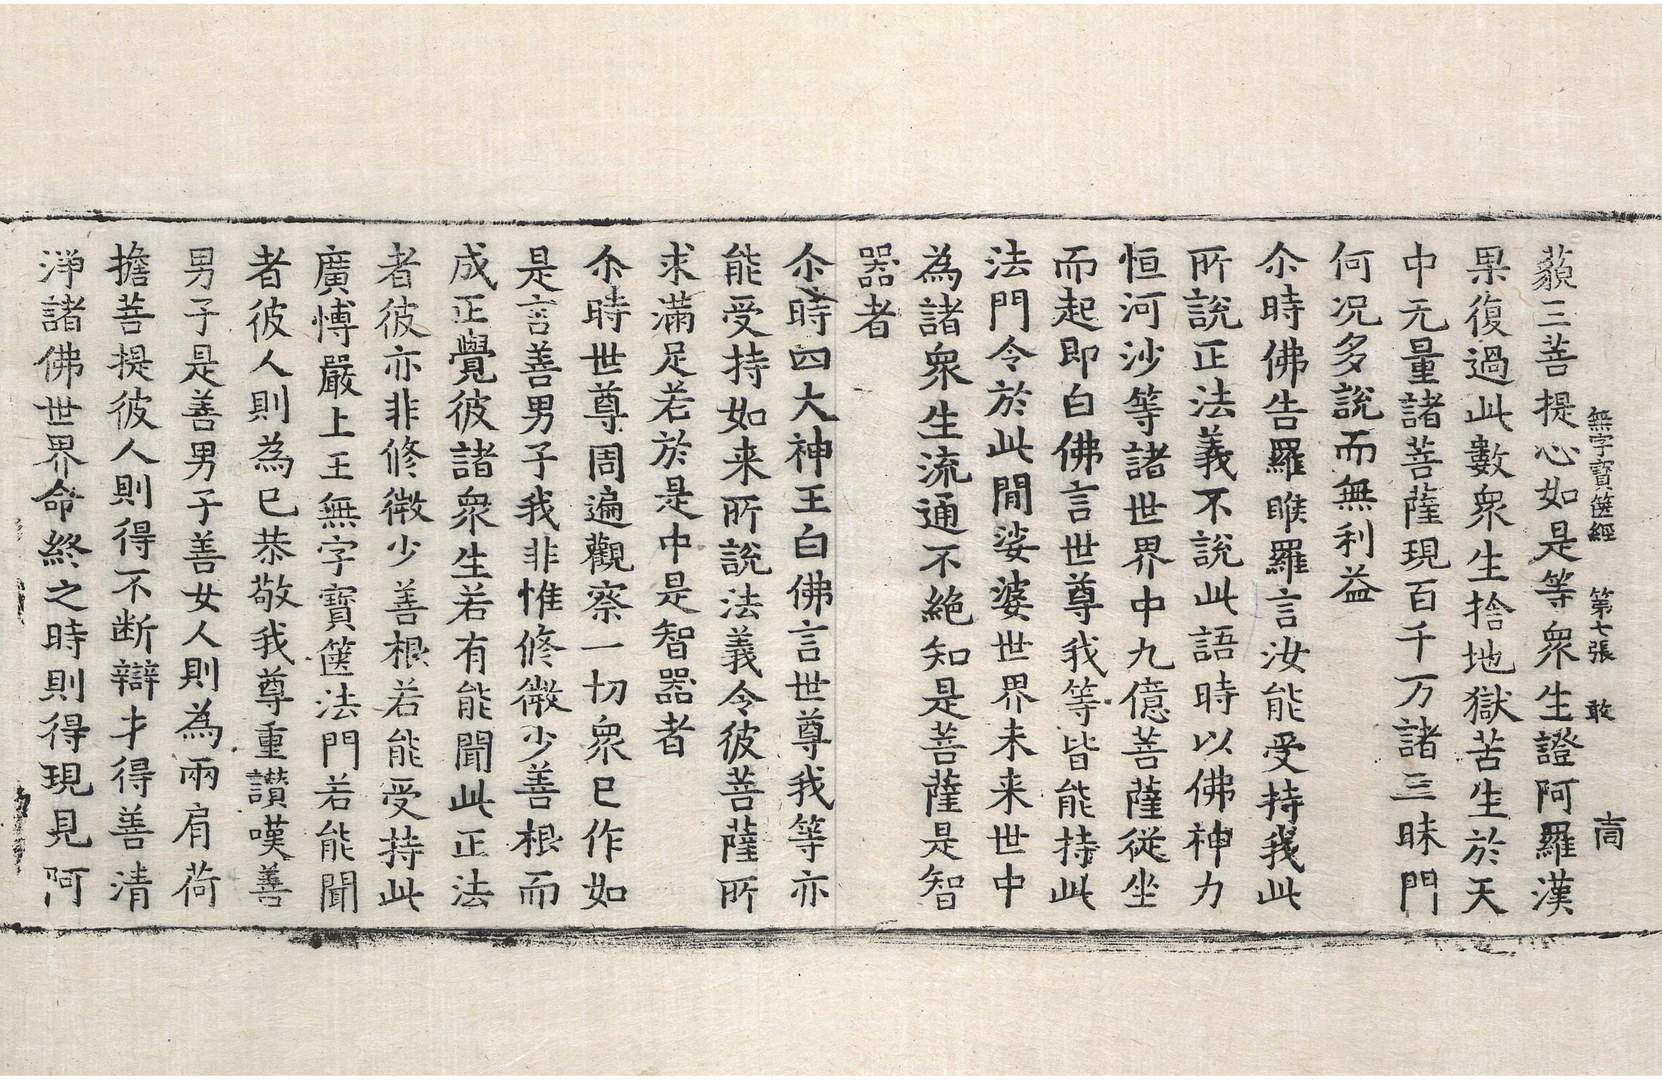 無字寶篋經 第七張 敢
藐三菩提心如是等衆生證阿羅漢
果復過此數衆生捨地獄苦生於天
中无量諸菩薩現百千万諸三昧門
何况多說而無利益
尒時佛告羅睺羅言汝能受持我此
所說正法義不說此語時以佛神力
恒河沙等諸世界中九億菩薩從坐
而起即白佛言世尊我等皆能持此
法門令於此閒娑婆世界未来世中
為諸衆生流通不絶知是菩薩是智
器者
尒時四大神王白佛言世尊我等亦
能受持如来所說法義令彼菩薩所
求滿足若於是中是智器者
尒時世尊周遍觀察一切衆已作如
是言善男子我非惟修微少善根而
成正覺彼諸衆生若有能聞此正法
者彼亦非修微少善根若能受持此
廣愽嚴上王無字寶篋法門若能聞
者彼人則為已恭敬我尊重讃嘆善
男子是善男子善女人則為兩肩荷
擔菩提彼人則得不断辯才得善清
淨諸佛世界命終之時則得現見阿